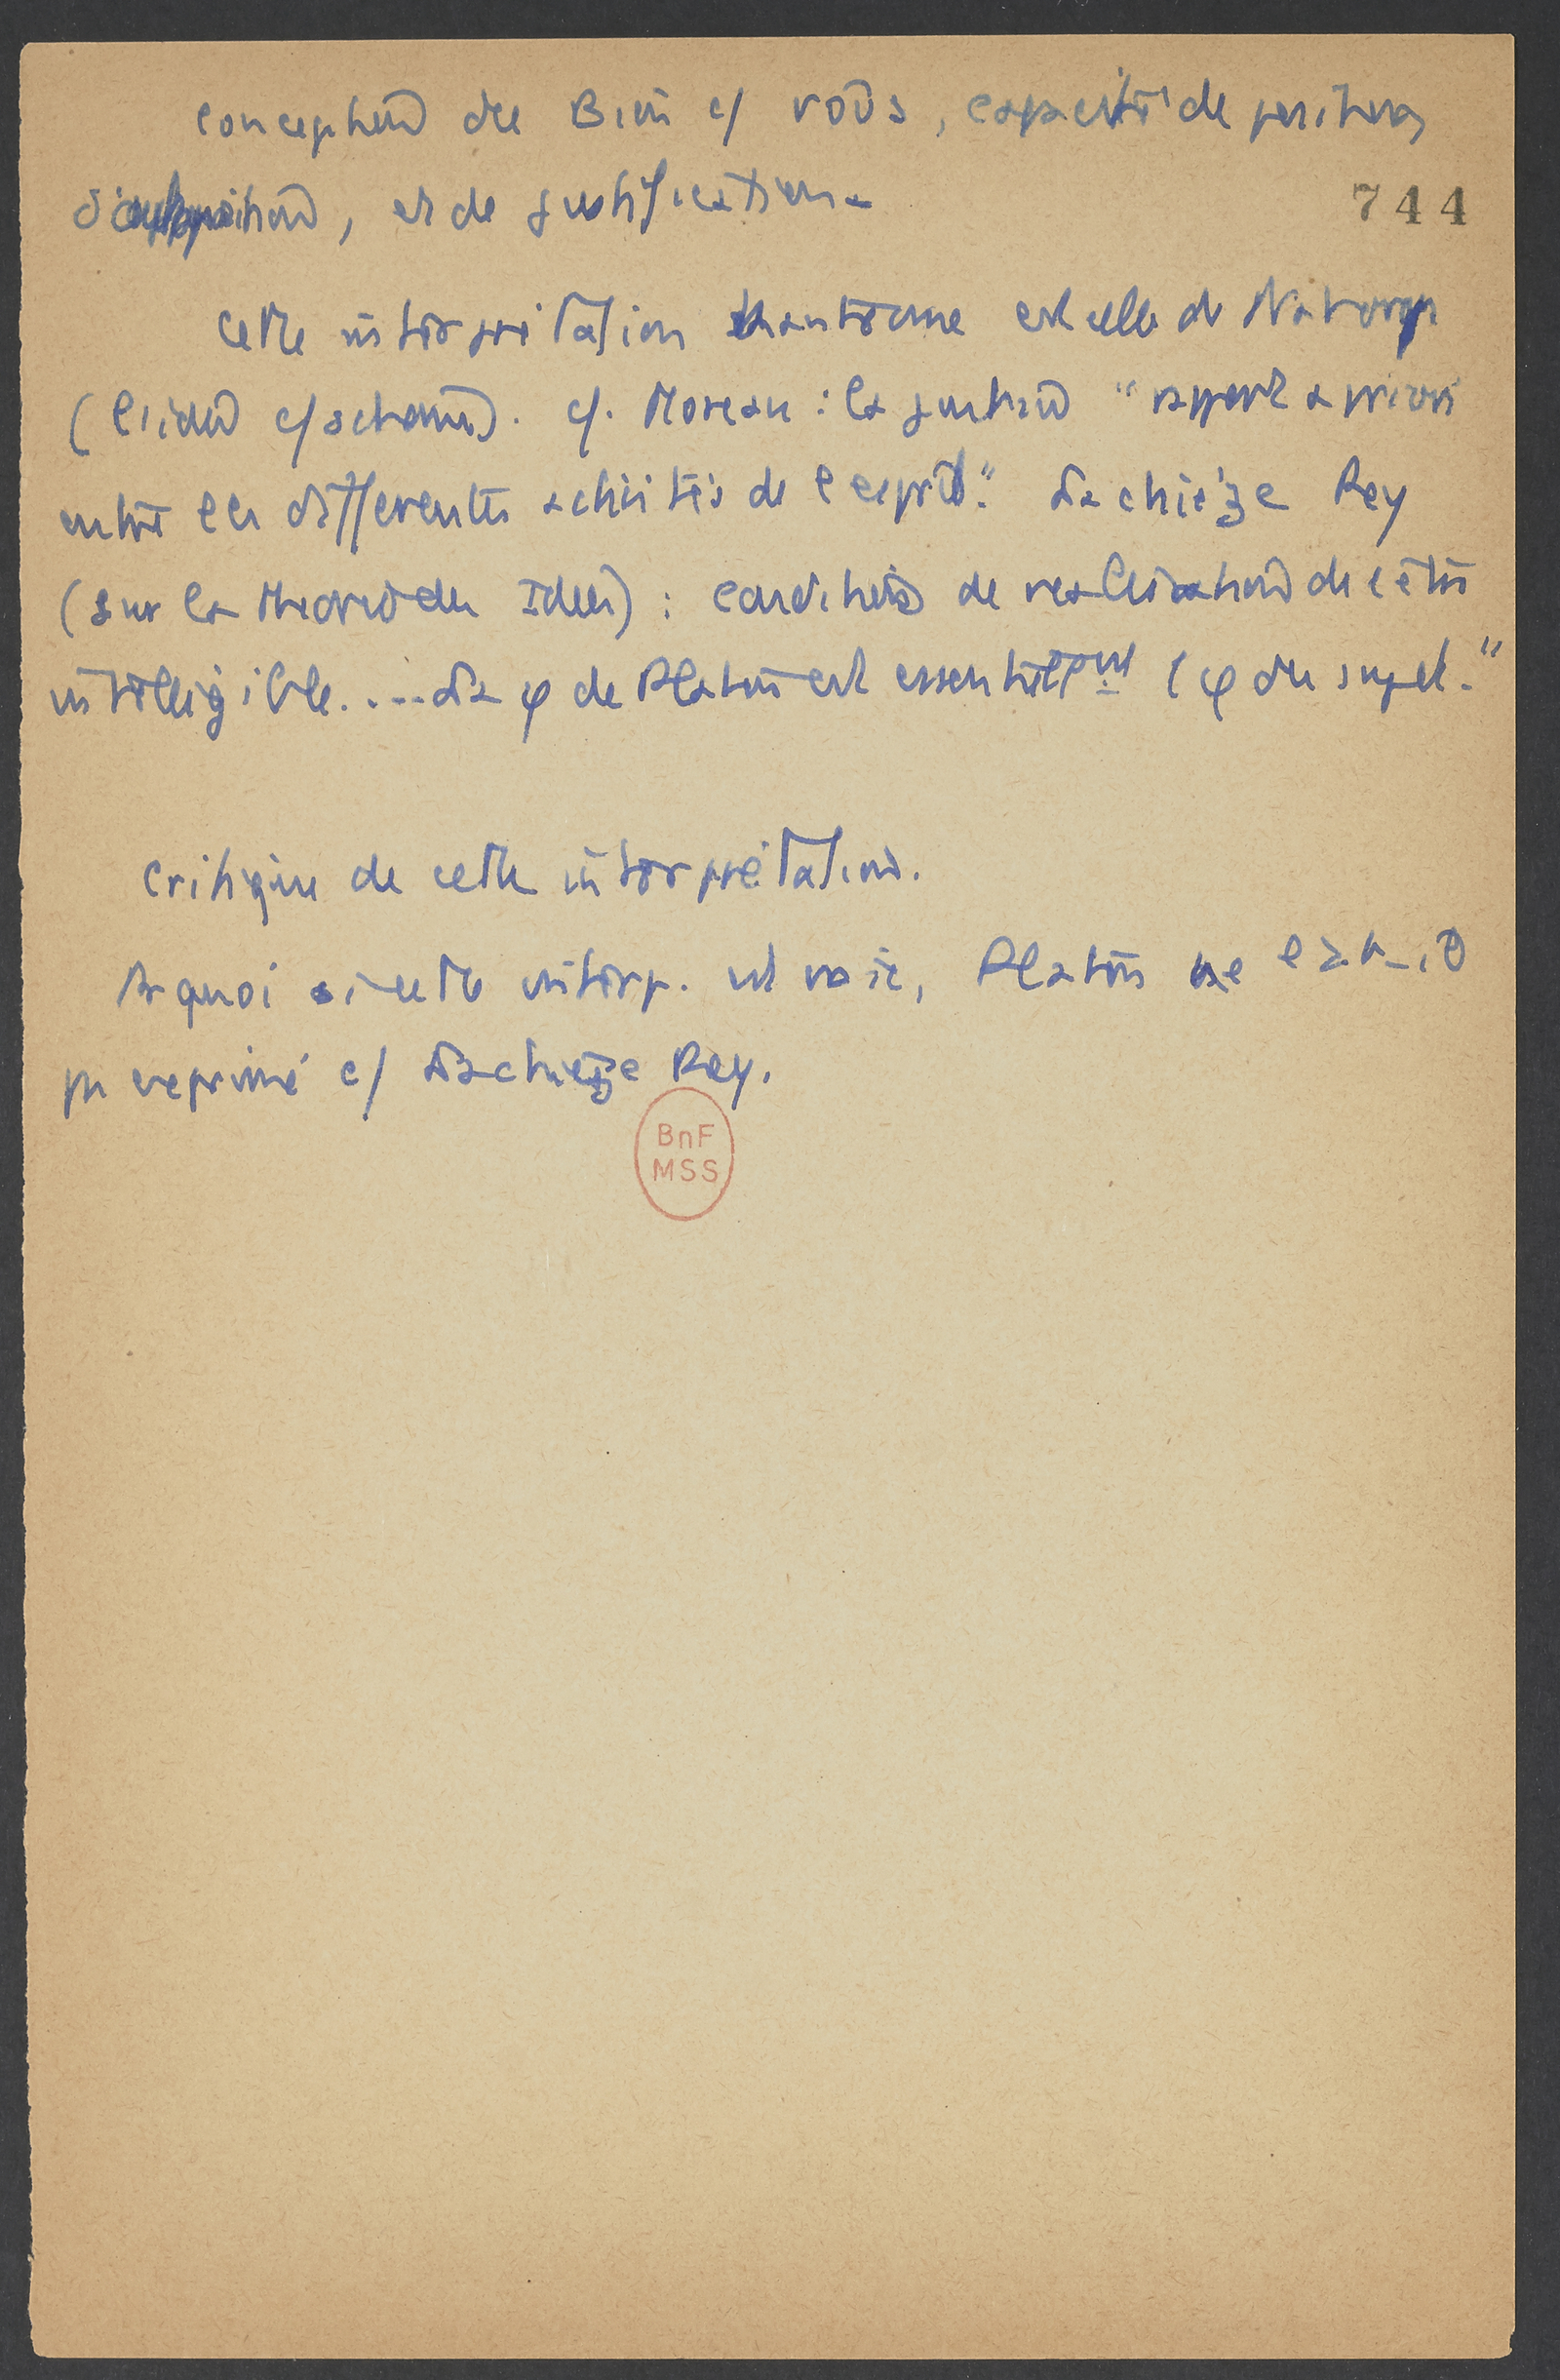 conception du Bien c/ νοῦς, capacité de position,
, et de justification.
744
Cette interprétation kantienne est celle de Natorp
(l'idée c/ schème). c/. Moreau : la justice "rapport a priori
entre les différentes activités de l'esprit." Lachièze Rey
(sur la théorie des Idées) : condition de réalisation de l'être
intelligible.... La φ de Platon est essentiellement 1 φ du sujet."
Critique de cette interprétation.
Pquoi si cette interp. est vraie, Platon ne l'a-t-il
pas exprimé c/ Lachièze Rey.
BnF
MSS